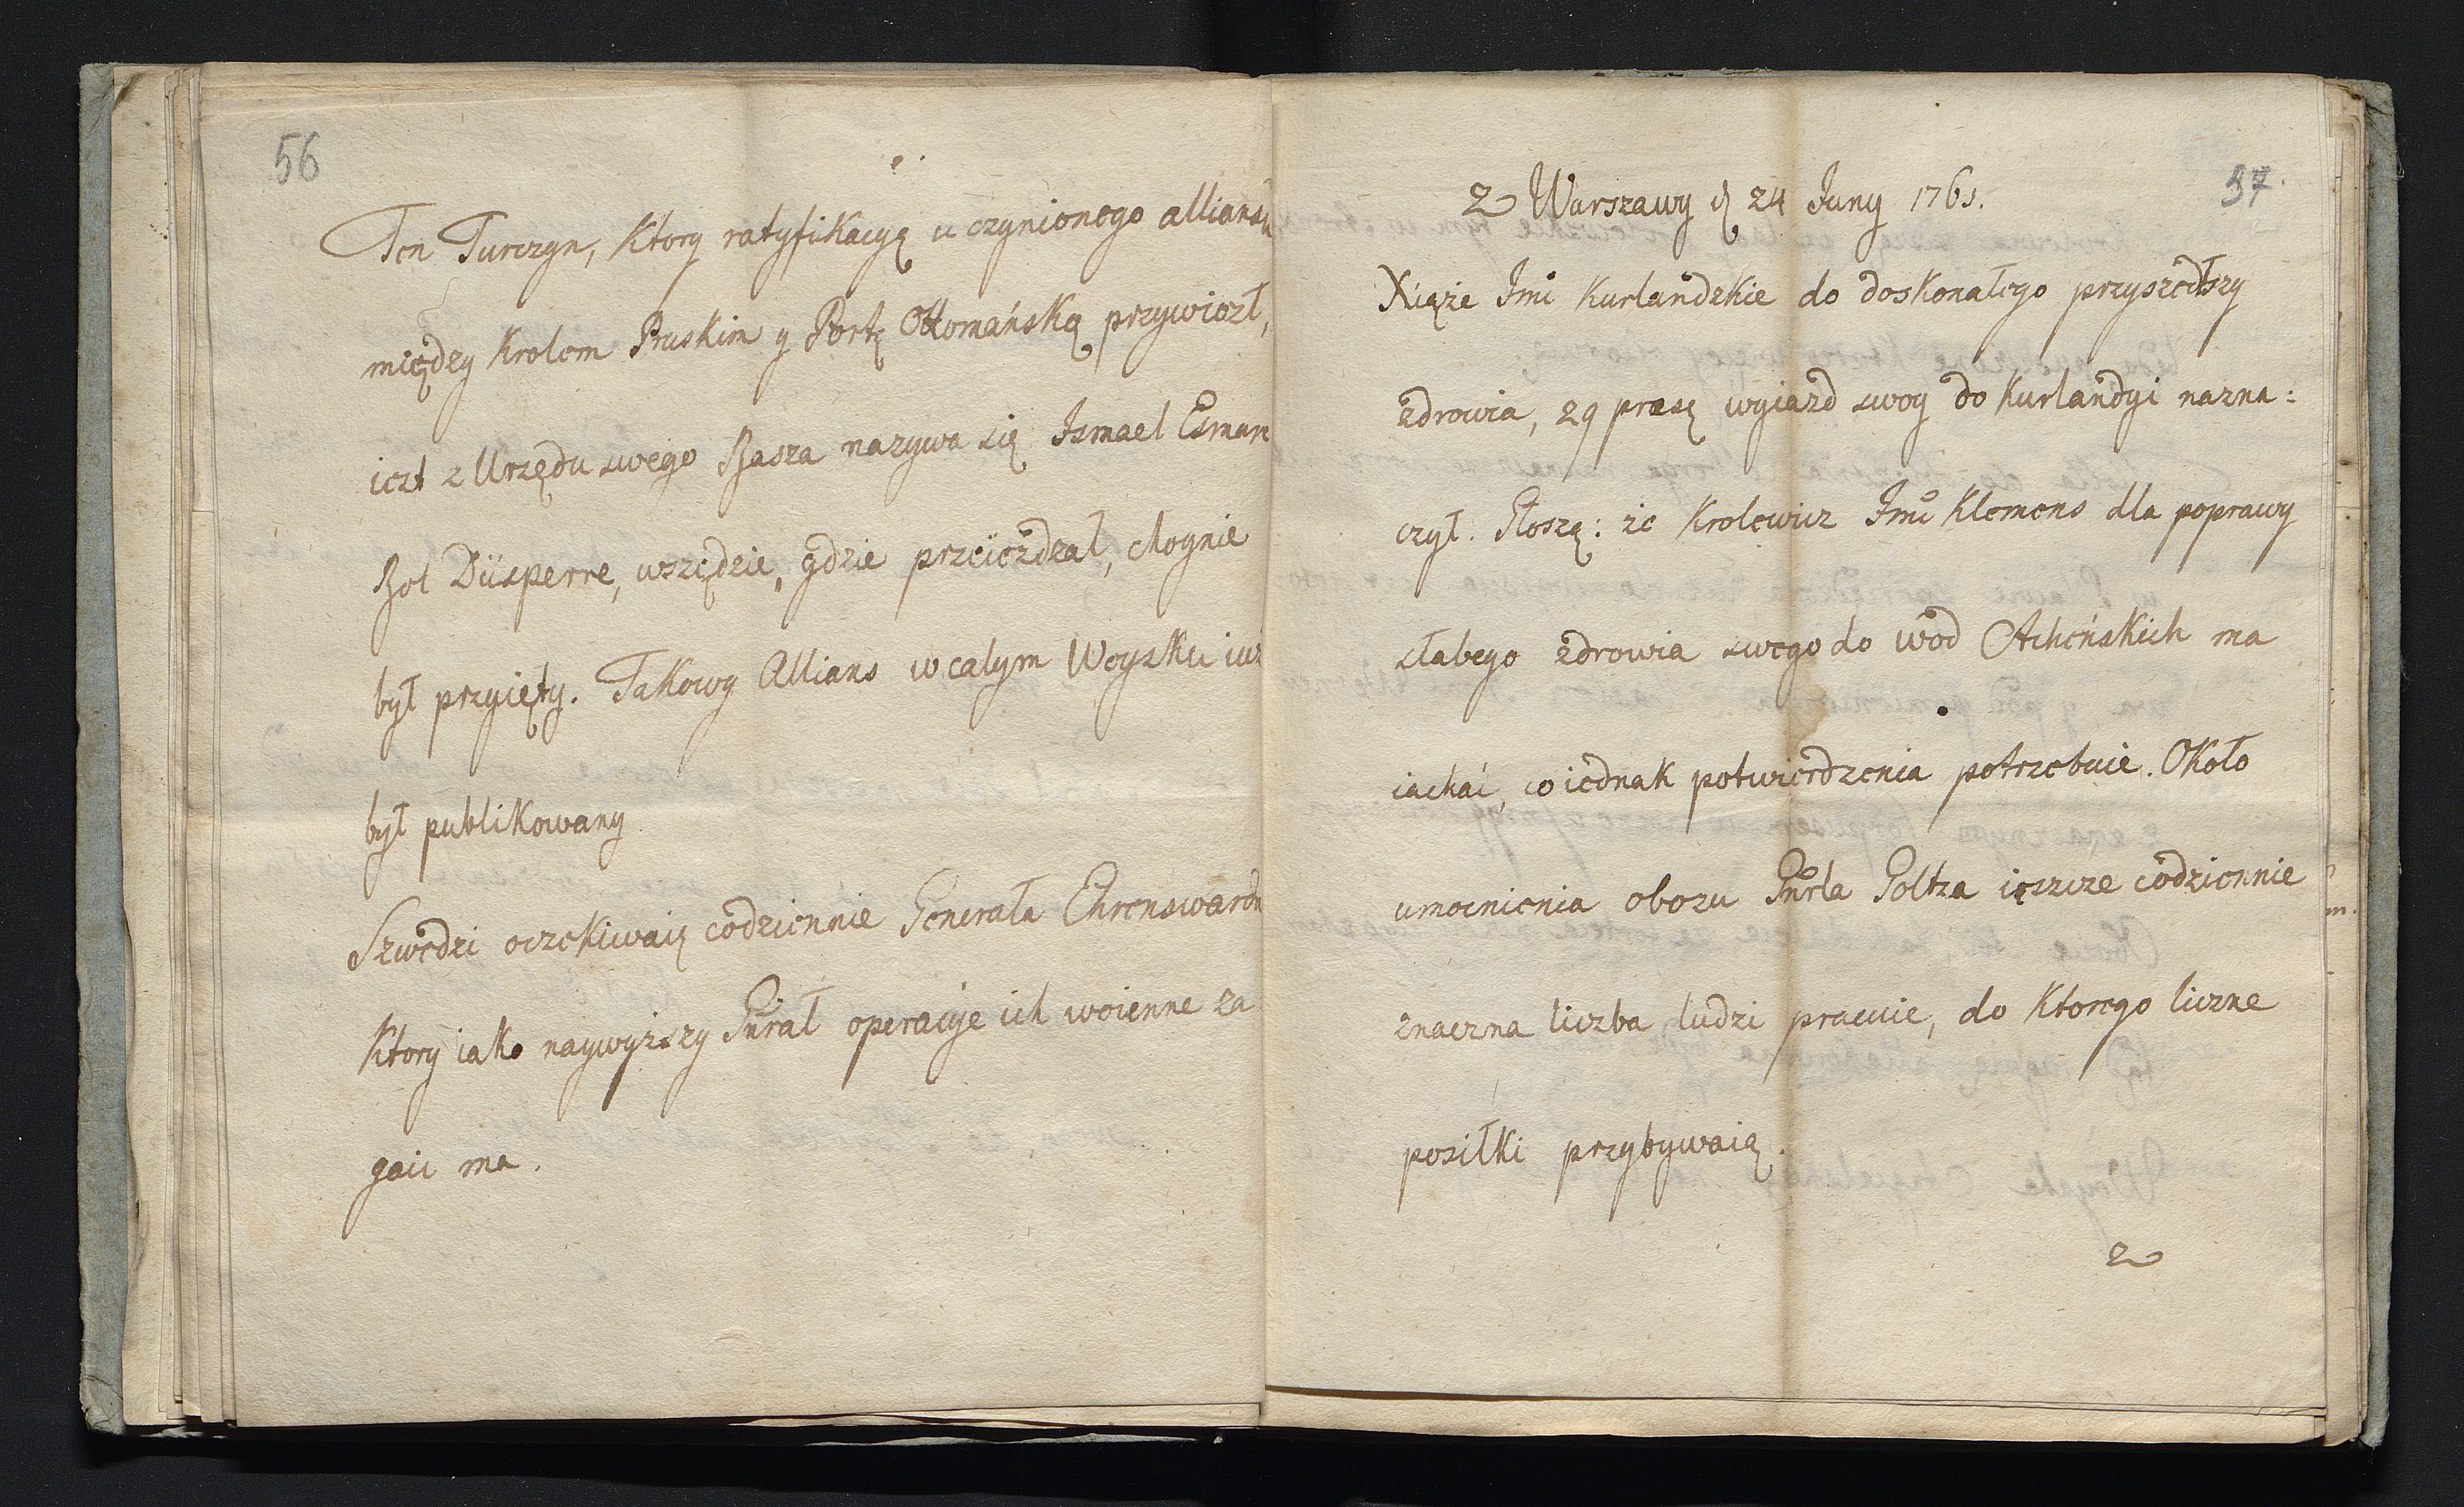 56
Ten Turczyn, Ktory ratyfikacyą uczynionego alliansu
między Krolem Pruskim y Portą Ottomańską przywiozł,
iest z Urzędu swego Basza nazywa się Ismael
Bol wszędzie, gdzie przeieżdzał, choynie
był przyięty. Takowy Allians w calym Woysku iuż
był publikowany
Szwedzi oczekiwaią codziennie Generała
Ktory iako naywyższy Gñrał operacye ich woienne za
gaić ma.
57.
Z Warszawy d 24 Juny 1761.
Xiąże Jmć Kurlandzkie do doskonałego przyszedłszy
zdrowia, 29 wyiazd swoy do Kurlandyi nazna:
czył. Głoszą: że Krolewicz Jmć Klemens dla poprawy
słabego zdrowia swego do wod Acheńskich ma
iachać, co iednak potwierdzenia potrzebuie. Około
umocnienia obozu Gñrła Goltza ieszcze codziennie
znaczna liczba ludzi pracuie, do Ktorego liczne
posiłki przybywaią.
Z